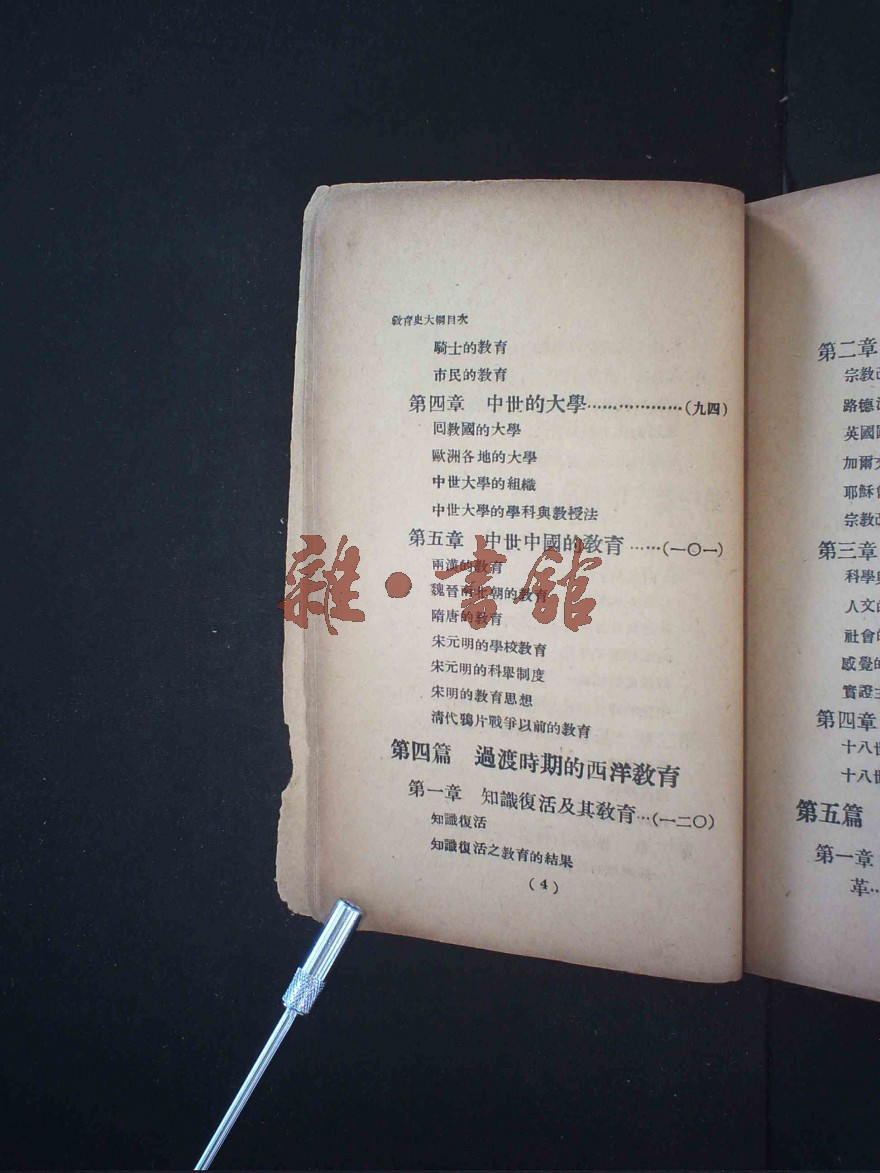 教育史大綱目次
騎士的教育
市民的教育
第四章　中世的大學………………(九四)
回教國的大學
歐洲各地的大學
中世大學的組織
中世大學的學科與教授法
第五章　中世中國的教育……(一〇一)
兩漢的教育
魏晉南北朝的教育
隋唐的教育
宋元明的學校教育
宋元明的科舉制度
宋明的教育思想
清代鴉片戰爭以前的教育
第四篇　過渡時期的西洋教育
第一章　知識復活及其教育…(一二〇)
知識復活
知識復活之教育的結果
(4)
雜·書館
第二章
宗教
路德
英國
加爾
耶穌
宗教
第三章
科學
人文
社會
感覺的
實證
第四章
十八世
十八世
第五篇
第一章
革…